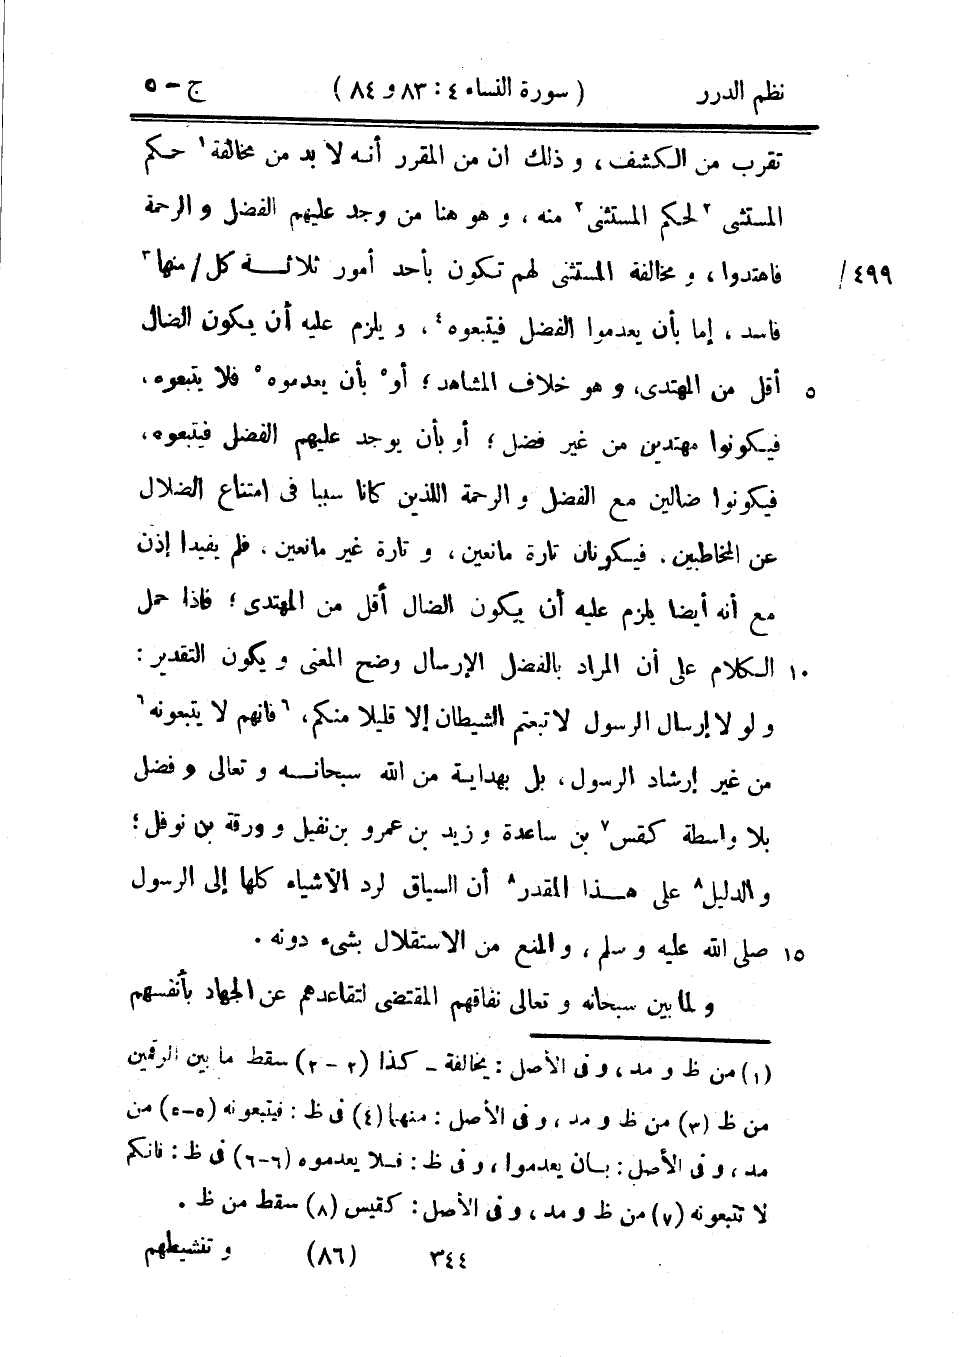 نظم الدرر ( سورة النساء ٤ : ٨٣ و ٨٤ ) ج - ٥
تقرب من الكشف ، و ذلك ان من المقرر أنه لا بد من مخالفة ١ حكم
المستثنى ٢ لحكم المستثنى ٢ منه ، و هو هنا من وجد عليهم الفضل و الرحمة
فاهتدوا ، و مخالفة المستثنى لهم تكون بأحد أمور ثلاثة كل / منها ٣ / ٤٩٩
فاسد ، إما بأن يعدموا الفضل فيتبعوه ٤ ، و يلزم عليه أن يكون الضال
٥ أقل من المهتدى ، و هو خلاف المشاهد ؛ أو ٥ بأن يعدموه ٥ فلا يتبعوه ،
فيكونوا مهتدين من غير فضل ؛ أو بأن يوجد عليهم الفضل فيتبعوه ،
فيكونوا ضالين مع الفضل و الرحمة اللذين كانا سببا فى امتناع الضلال
عن المخاطبين . فيكونان تارة مانعين ، و تارة غير مانعين ، فلم يفيدا إذن
مع أنه أيضا يلزم عليه أن يكون الضال أقل من المهتدى ؛ فاذا حمل
١٠ الكلام على أن المراد بالفضل الإرسال وضح المعنى و يكون التقدير :
و لو لا إرسال الرسول لاتبعتم الشيطان إلا قليلا منكم ، ٦ فانهم لا يتبعونه ٦
من غير إرشاد الرسول ، بل بهداية من الله سبحانه و تعالى و فضل
بلا واسطة كقس ٧ بن ساعدة و زيد بن عمرو بن نفيل و ورقة بن نوفل ؛
و الدليل ٨ على هذا المقدر ٨ أن السياق لرد الأشياء كلها إلى الرسول
١٥ صلى الله عليه و سلم ، و المنع من الاستقلال بشىء دونه .
و لما بين سبحانه و تعالى نفاقهم المقتضى لتقاعدهم عن الجهاد بأنفسهم
(١) من ظ و مد ، و فى الأصل : يخالفة - كذا (٢ - ٢) سقط ما بين الرقمين
من ظ (٣) من ظ و مد ، و فى الأصل : منهما (٤) فى ظ : فيتبعونه (٥-٥) من
مد ، و فى الأصل : بان يعدموا ، و فى ظ : فلا يعدموه (٦-٦) فى ظ : فانكم
لا تتبعونه (٧) من ظ و مد ، و فى الأصل : كقيس (٨) سقط من ظ .
٣٤٤ (٨٦) و تنشيطهم